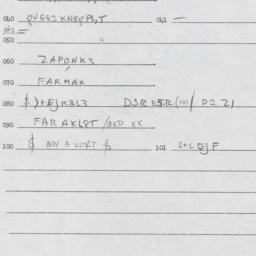 040 QVGEZKNBEPLT 041 —
042 =
050
060 ZAPONK3
070 FARMAX
080 $)+EJK3L3 DSRESR(101/D2Z1
090 FARAKLPT/OED XX
100 $ NOVAVORT $ 101 S+LEJF